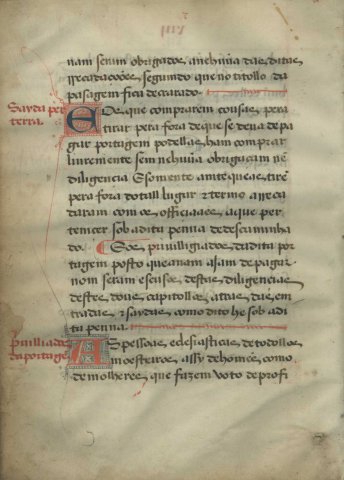 nam seram obrigados a nehũua das ditas
arrecadações, segundo que no titollo da
pasagem fica decrarado.
Sayda per
terra.
E Os que comprarem cousas pera
tirar pera fora de que se deua de pa
gar portagem podellas ham comprar
liuremente sem nehuũa obrigaçam nẽ
diligencia E somente ante que as tirẽ
pera fora do tall lugar & termo arreca
daram com os officiaaes a que per
tencer sob a dita penna de descaminha
do. E Os priuilligiados da dita por
tagem posto que a nam ajam de pagar
nom seram escusos destas diligençias
destes dous capitollos atras das en
tradas & saydas como dito he sob a di
ta penna.
Priuilliados
da portagẽ
AS pessoas eclesiasticas de todollos
moesteiros assy de homẽes como
de molheres que fazem voto de profi